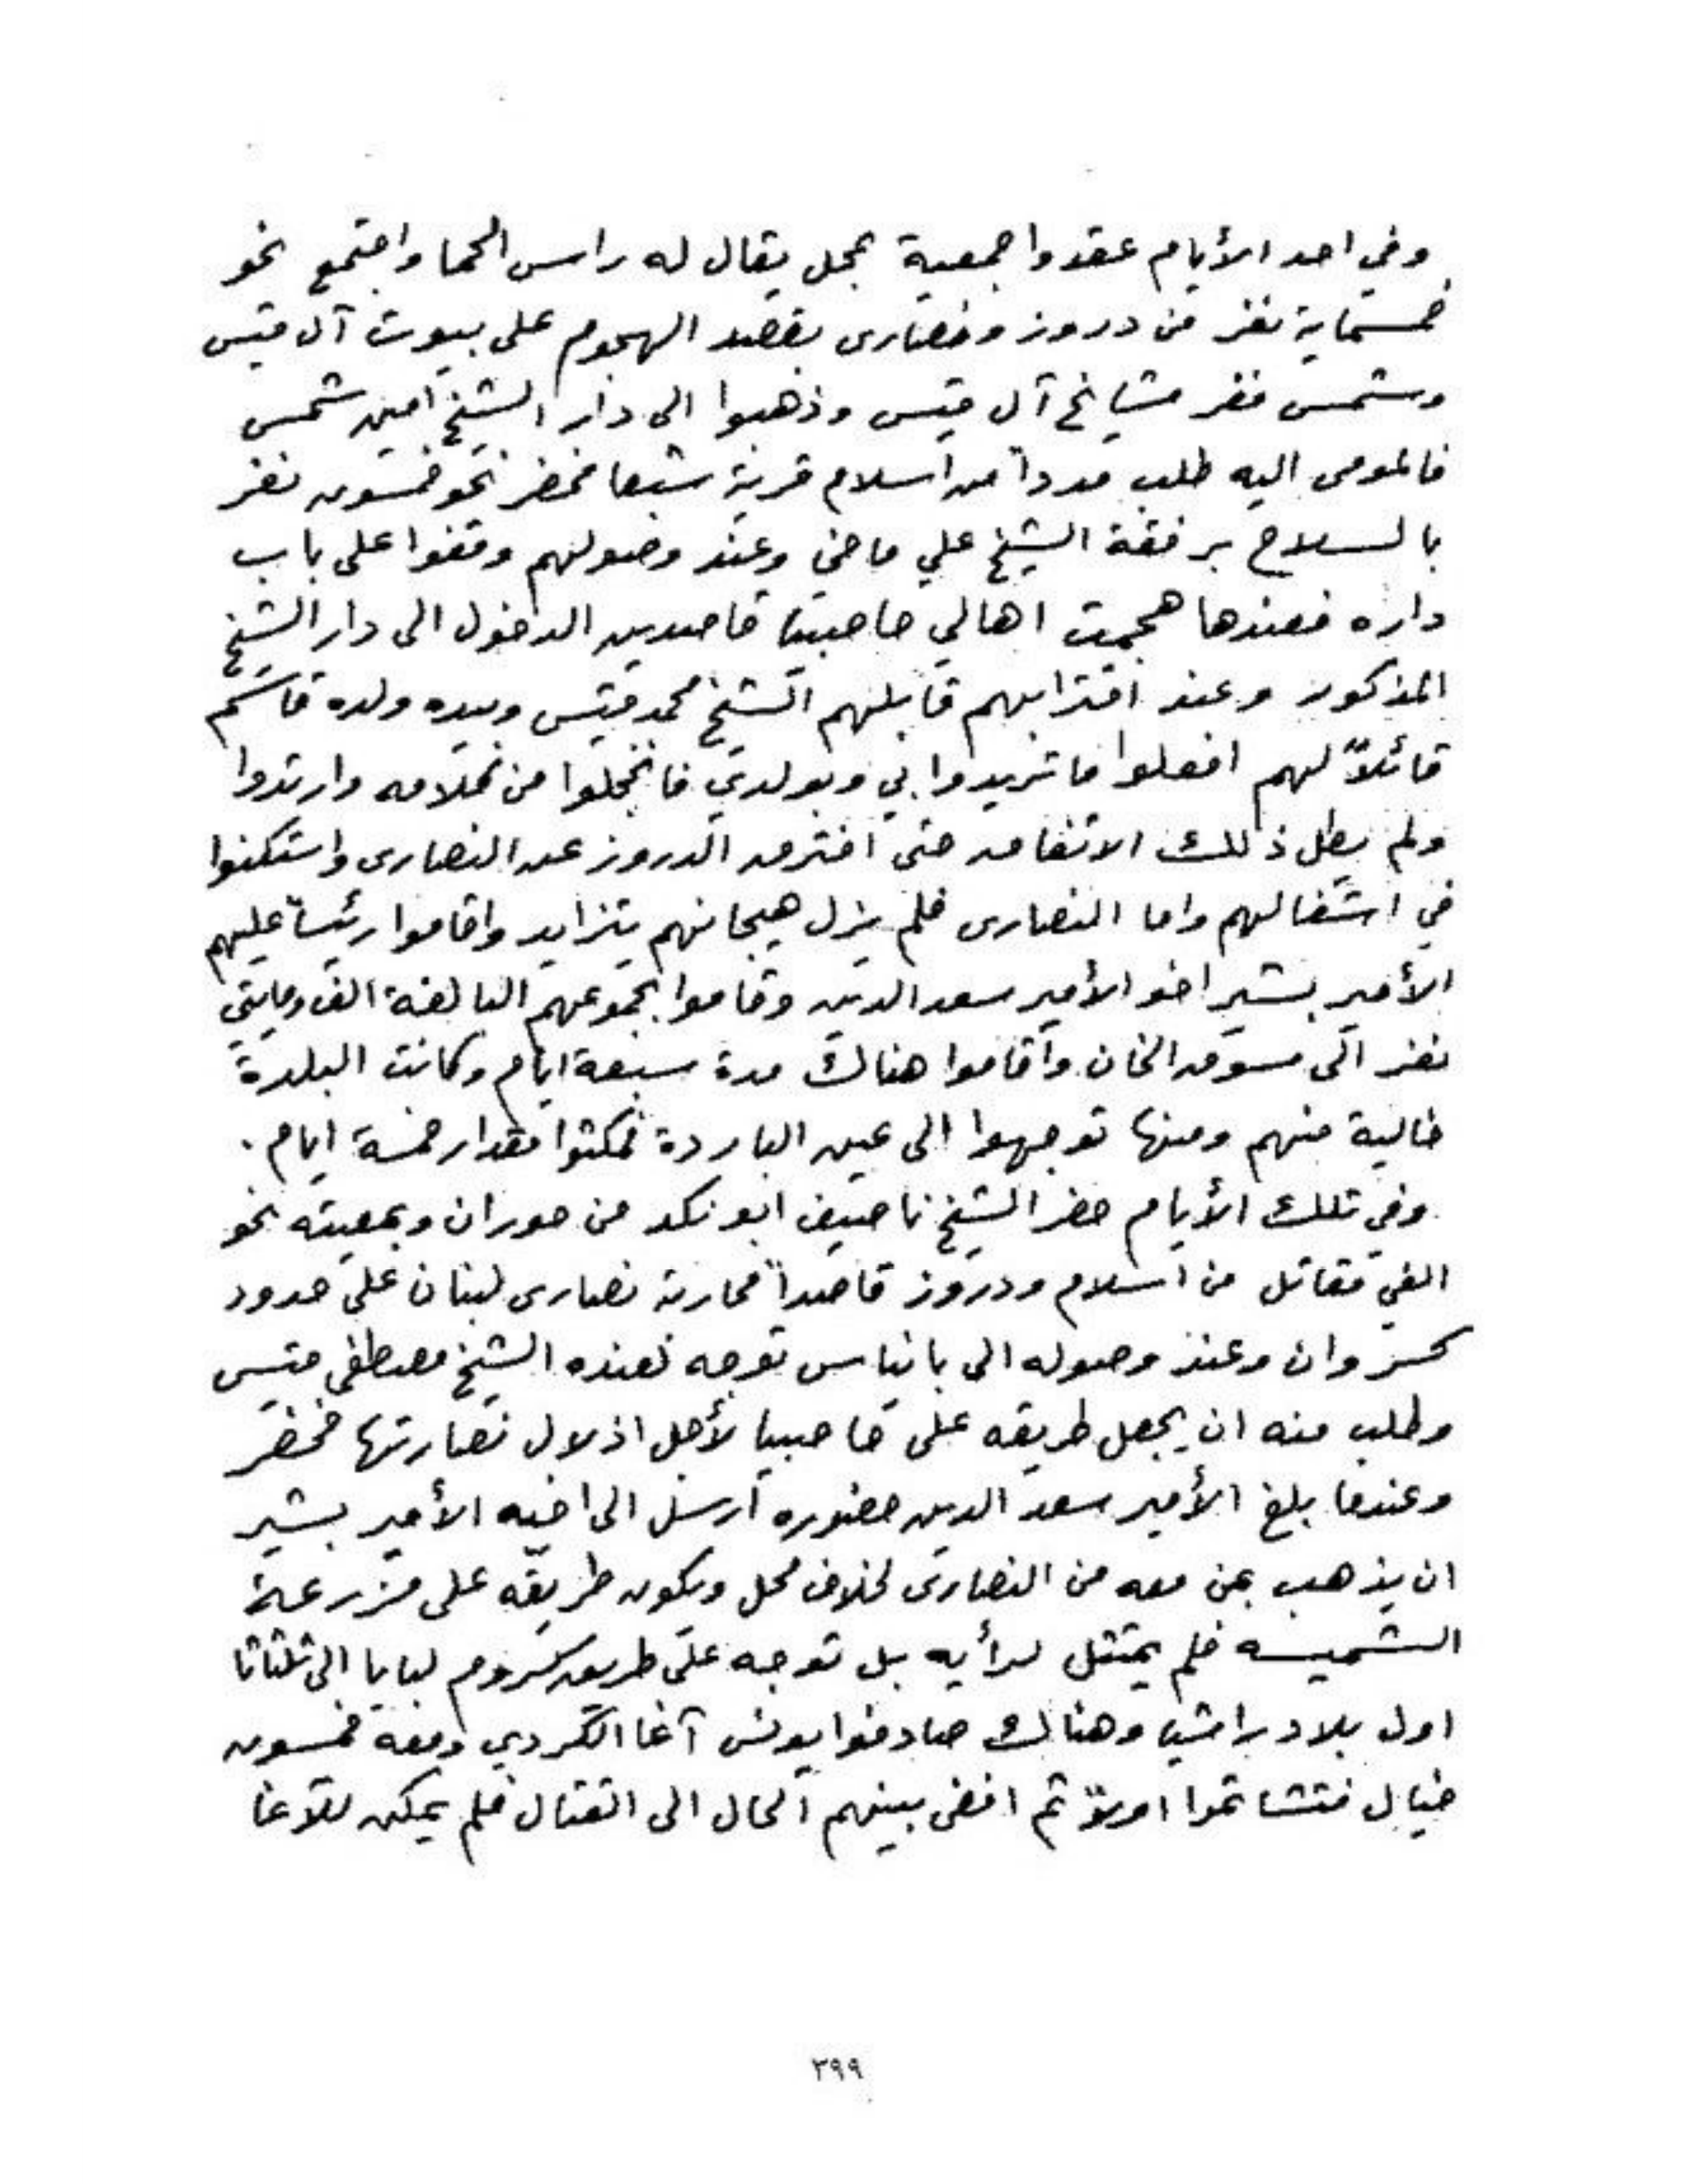 وفي احد الأيام عقدوا جمعية بمحل يقال له راس الحما واجتمع نحو
خمسماية نفر من دروز ونصارى بقصد الهجوم على بيوت آل قيس
وشمس ففر مشايخ آل قيس وذهبوا الى دار الشيخ امين شمس
فالمومى اليه طلب مدداً من اسلام قرية شبعا فحضر نحو خمسون نفر
بالسلاح برفقة الشيخ علي ماضي وعند وصولهم وقفوا على باب
داره فعندها هجمت اهالي حاصبيا قاصدين الدخول الى دار الشيخ
المذكور وعند اقترابهم قابلهم الشيخ محمد قيس وبيده ولده قاسم
قائلاً لهم افعلوا ما تريدوا بي وبولدي فانخجلوا من كلامه وارتدوا
ولم يطل ذلك الاتفاق حتى افترق الدروز عن النصارى واستكنوا
في اشغالهم واما النصارى فلم يزل هيجانهم يتزايد واقاموا رئيساً عليهم
الأمير بشير اخو الأمير سعد الدين وقاموا بجموعهم البالغة الف ومايتي
نفر الى سوق الخان واقاموا هناك مدة سبعة ايام وكانت البلدة
خالية منهم ومنها توجهوا الى عين الباردة فمكثوا مقدار خمسة ايام .
وفي تلك الأيام حضر الشيخ ناصيف ابو نكد من حوران وبمعيته نحو
الفي مقاتل من اسلام ودروز قاصداً محاربة نصارى لبنان على حدود
كسروان وعند وصوله الى بانياس توجه لعنده الشيخ مصطفى قيس
وطلب منه ان يجعل طريقه على حاصبيا لأجل اذلال نصارتها فحضر
وعندما بلغ الأمير سعد الدين حضوره ارسل الى اخيه الأمير بشير
ان يذهب بمن معه من النصارى لخلاف محل ويكون طريقه على مزرعة
الشميسه فلم يمتثل لرأيه بل توجه على طريق كروم لبايا الى ثلثاثا
اول بلاد راشيا وهناك صادفوا يونس آغا الكردي ومعه خمسون
خيال فتشاتموا اولاً ثم افضى بينهم الحال الى القتال فلم يمكن للآغا
٣٩٩